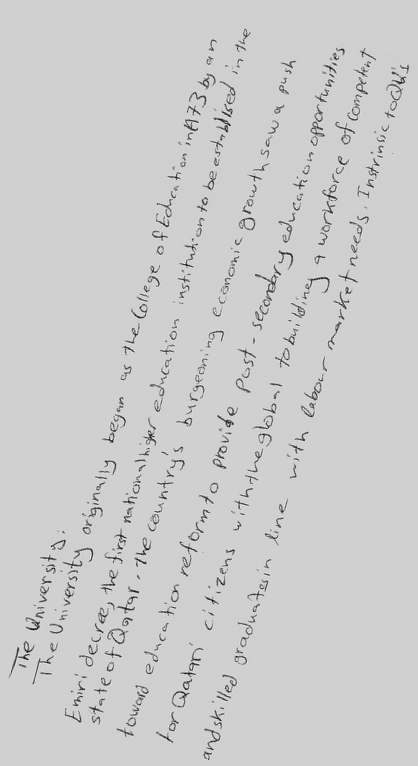 The University:
The University originally began as the College of Education in 1973 by an
Emiri decree, the first national higher education institution to be established in the
state of Qatar. The country's burgeoning economic growth saw a push
toward education reform to provide post-secondary education opportunities
for Qatari citizens with the global to building a workforce of competent
and skilled graduates in line with labour market needs. Instrinsic to QU's